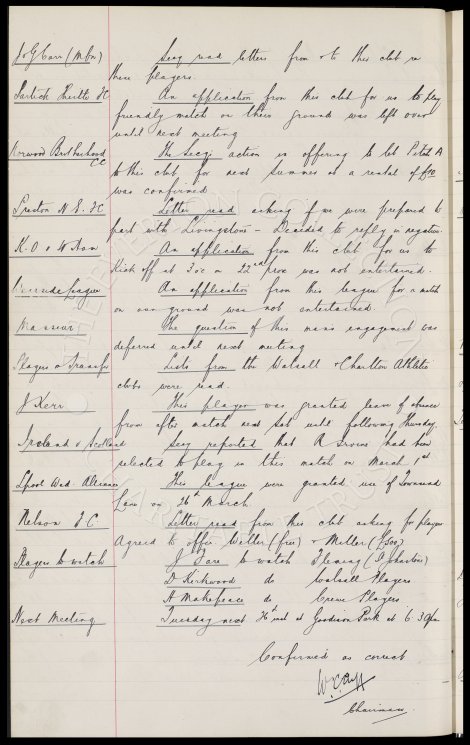 J & G Carr (Mbro) Secy read letters from & to this club re
these players.
Partick Thistle FC An application from this club for us to play
friendly match on their ground was left over
until next meeting
Norwood Brotherhood CC The Secy's action in offering to let Pitch A
to this club for next summer at a rental of £20
was confirmed
Preston N E FC Letter read asking if we were prepared to
part with Livingstone - Decided to reply in negative.
K.O. v W Ham An application from this club for us to
Kick off at 3oc on 22nd prox was not entertained.
League An application from this league for a match
on our ground was not entertained
Masseur The question of this mans engagement was
deferred until next meeting
Players on Transfer Lists from the Walsall & Charlton Athletic
clubs were read.
J Kerr This player was granted leave of absence
from after match next Sat until following Thursday.
Ireland v Scotland Secy reported that R Irvine had been
selected to play in this match on March 1st
Lpool Wed. Alliance This league were granted use of Townsend
Lane on 26th March.
Nelson F.C. Letter read from this club asking for players
Agreed to offer Weller (free) & Miller (£500)
Players to watch J Fare to watch Fleming (St Johnstone)
D Kirkwood do Walsall Players
A Makepeace do Crewe Players
Next Meeting Tuesday next 26th inst at Goodison Park at 6.30pm
Confirmed as correct
Chairman